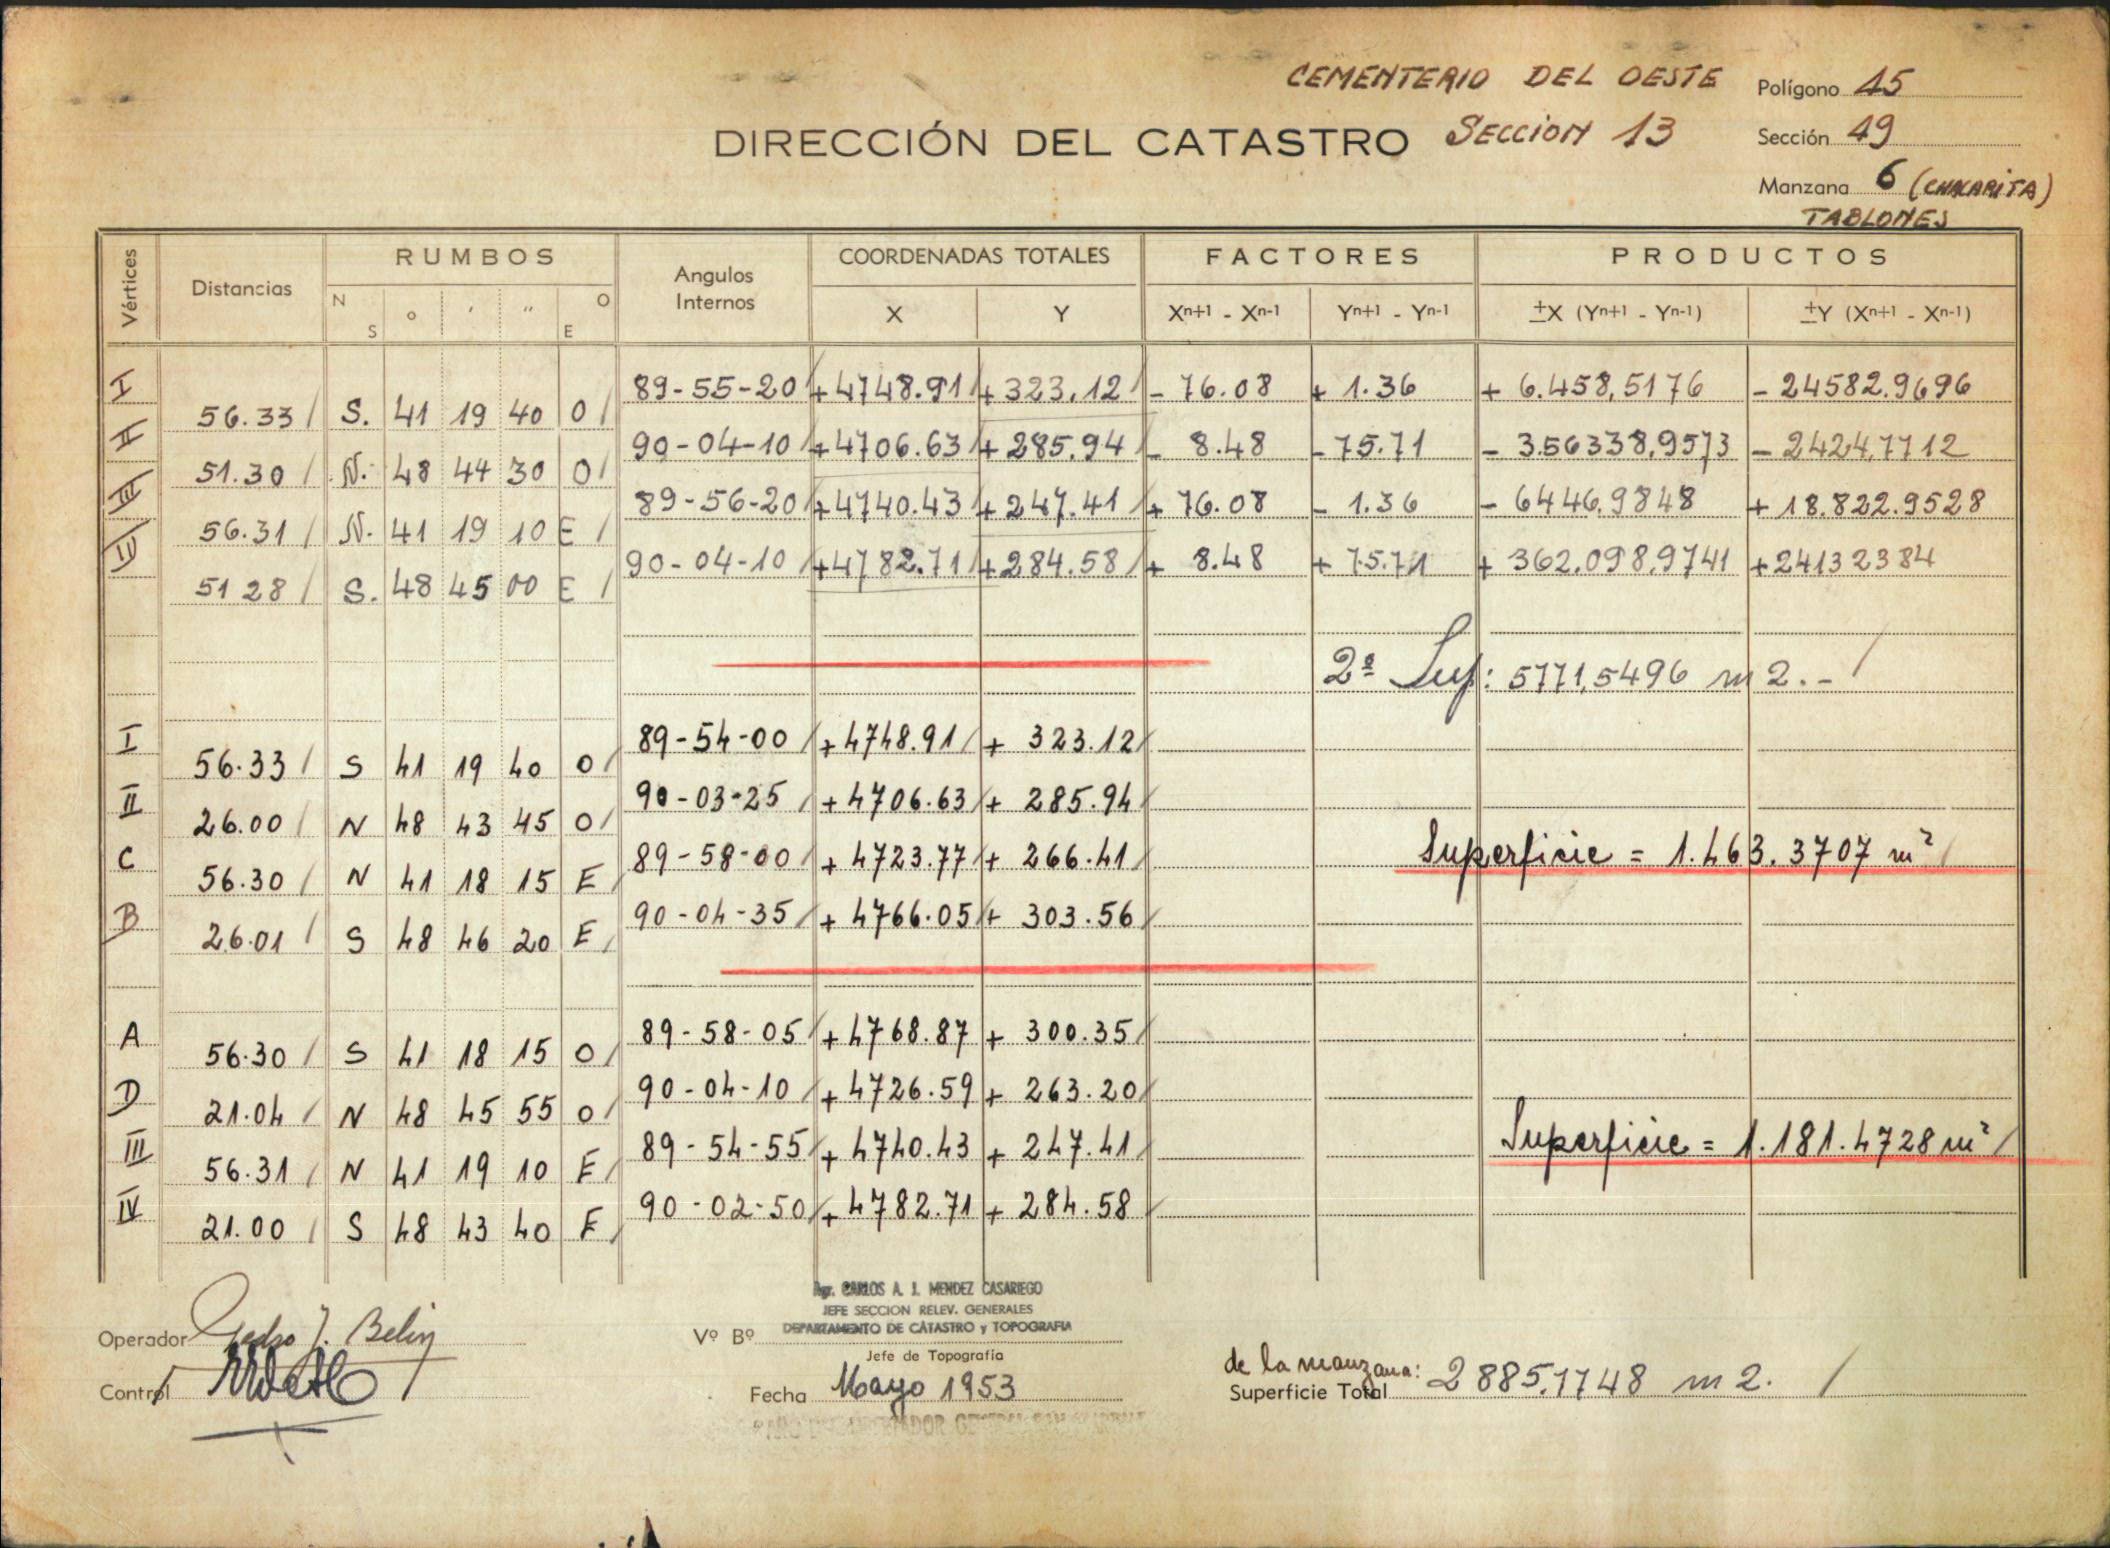 CEMENTERIO DEL OESTE
Polígono 15
DIRECCIÓN DEL CATASTRO SECCION 13
Sección 49
Manzana 6 (CHACARITA)
TABLONES
Vértices Distancias RUMBOS Angulos Internos COORDENADAS TOTALES FACTORES PRODUCTOS
N S ° ' " O E X Y Xn+1 - Xn-1 Yn+1 - Yn-1 ±X (Yn+1 - Yn-1) ±Y (Xn+1 - Xn-1)
I 89-55-20 +4748.91 +323.12 - 76.08 + 1.36 + 6.458,5176 - 24582.9696
56.33 S. 41 19 40 O
II 90-04-10 +4706.63 +285.94 - 8.48 - 75.71 - 3.56338,9573 - 2424,7712
51.30 N. 48 44 30 O
III 89-56-20 +4740.43 +247.41 + 76.08 - 1.36 - 6446,9848 + 18.822.9528
56.31 N. 41 19 10 E
IV 90-04-10 +4782.71 +284.58 + 8.48 + 75.71 + 362.098,9741 +24132384
51 28 S. 48 45 00 E
2ª Sup: 5771,5496 m2.-
I 89-54-00 +4748.91 + 323.12
56.33 S 41 19 40 O
II 90-03-25 +4706.63 + 285.94
26.00 N 48 43 45 O
C 89-58-00 + 4723.77 + 266.41 Superficie = 1.463.3707 m²
56.30 N 41 18 15 E
B 90-04-35 + 4766.05 + 303.56
26.01 S 48 46 20 E
A 89-58-05 +4768.87 + 300.35
56.30 S 41 18 15 O
D 90-04-10 +4726.59 + 263.20
21.04 N 48 45 55 O
III 89-54-55 + 4740.43 + 247.41 Superficie = 1.181.4728 m²
56.31 N 41 19 10 E
IV 90-02-50 + 4782.71 + 284.58
21.00 S 48 43 40 E
Agr. CARLOS A. J. MENDEZ CASARIEGO
JEFE SECCION RELEV. GENERALES
Operador Pedro J. Belin Vº Bº DEPARTAMENTO DE CATASTRO y TOPOGRAFIA
Jefe de Topografía
de la manzana:
Control Fecha Mayo 1953 Superficie Total 2885,1748 m2.